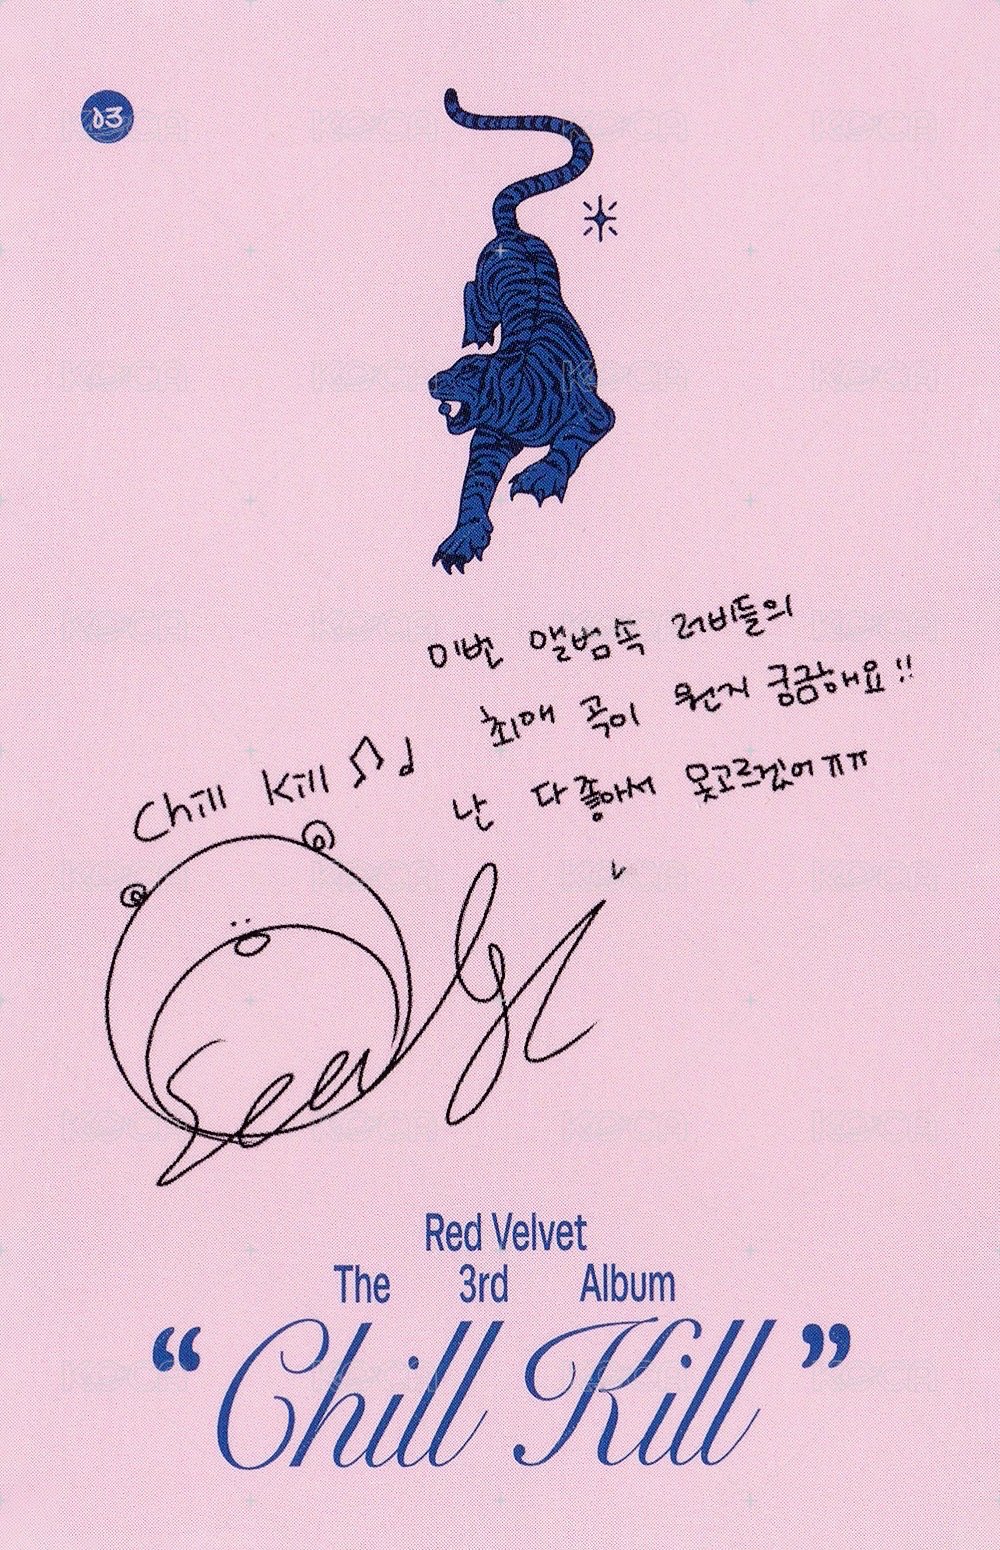 03
이번 앨범속 러비들의
최애 곡이 뭔지 궁금해요!!
난 다 좋아서 못고르겠어ㅠㅠ
Chill Kill
Seulgi
Red Velvet
The 3rd Album
“Chill Kill”